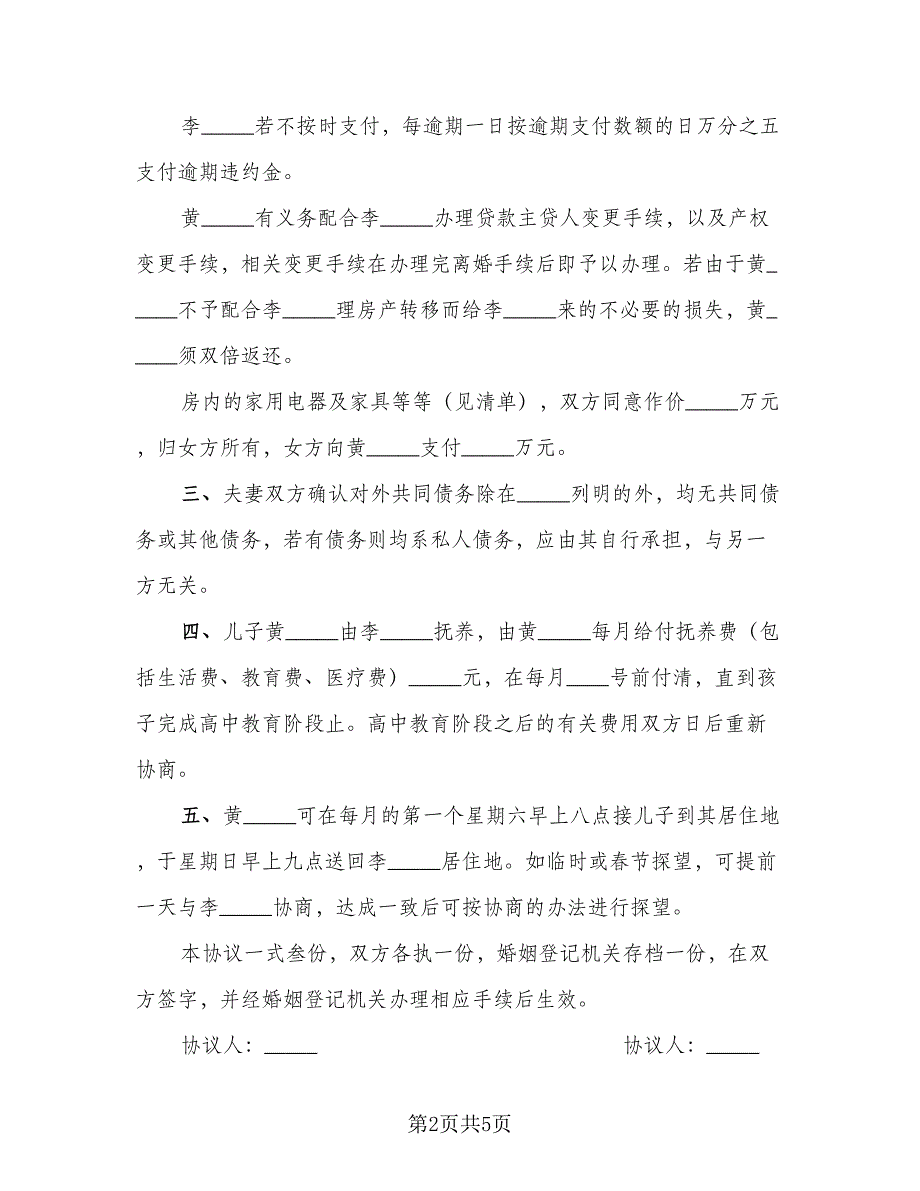 李_____若不按时支付，每逾期一日按逾期支付数额的日万分之五
支付逾期违约金。
黄_____有义务配合李_____办理贷款主贷人变更手续，以及产权
变更手续，相关变更手续在办理完离婚手续后即予以办理。若由于黄_
____不予配合李_____理房产转移而给李_____来的不必要的损失，黄_
____须双倍返还。
房内的家用电器及家具等等（见清单），双方同意作价_____万元
，归女方所有，女方向黄_____支付_____万元。
三、夫妻双方确认对外共同债务除在_____列明的外，均无共同债
务或其他债务，若有债务则均系私人债务，应由其自行承担，与另一
方无关。
四、儿子黄_____由李_____抚养，由黄_____每月给付抚养费（包
括生活费、教育费、医疗费）_____元，在每月____号前付清，直到孩
子完成高中教育阶段止。高中教育阶段之后的有关费用双方日后重新
协商。
五、黄_____可在每月的第一个星期六早上八点接儿子到其居住地
，于星期日早上九点送回李_____居住地。如临时或春节探望，可提前
一天与李_____协商，达成一致后可按协商的办法进行探望。
本协议一式叁份，双方各执一份，婚姻登记机关存档一份，在双
方签字，并经婚姻登记机关办理相应手续后生效。
协议人：_____ 协议人：_____
第2页共5页